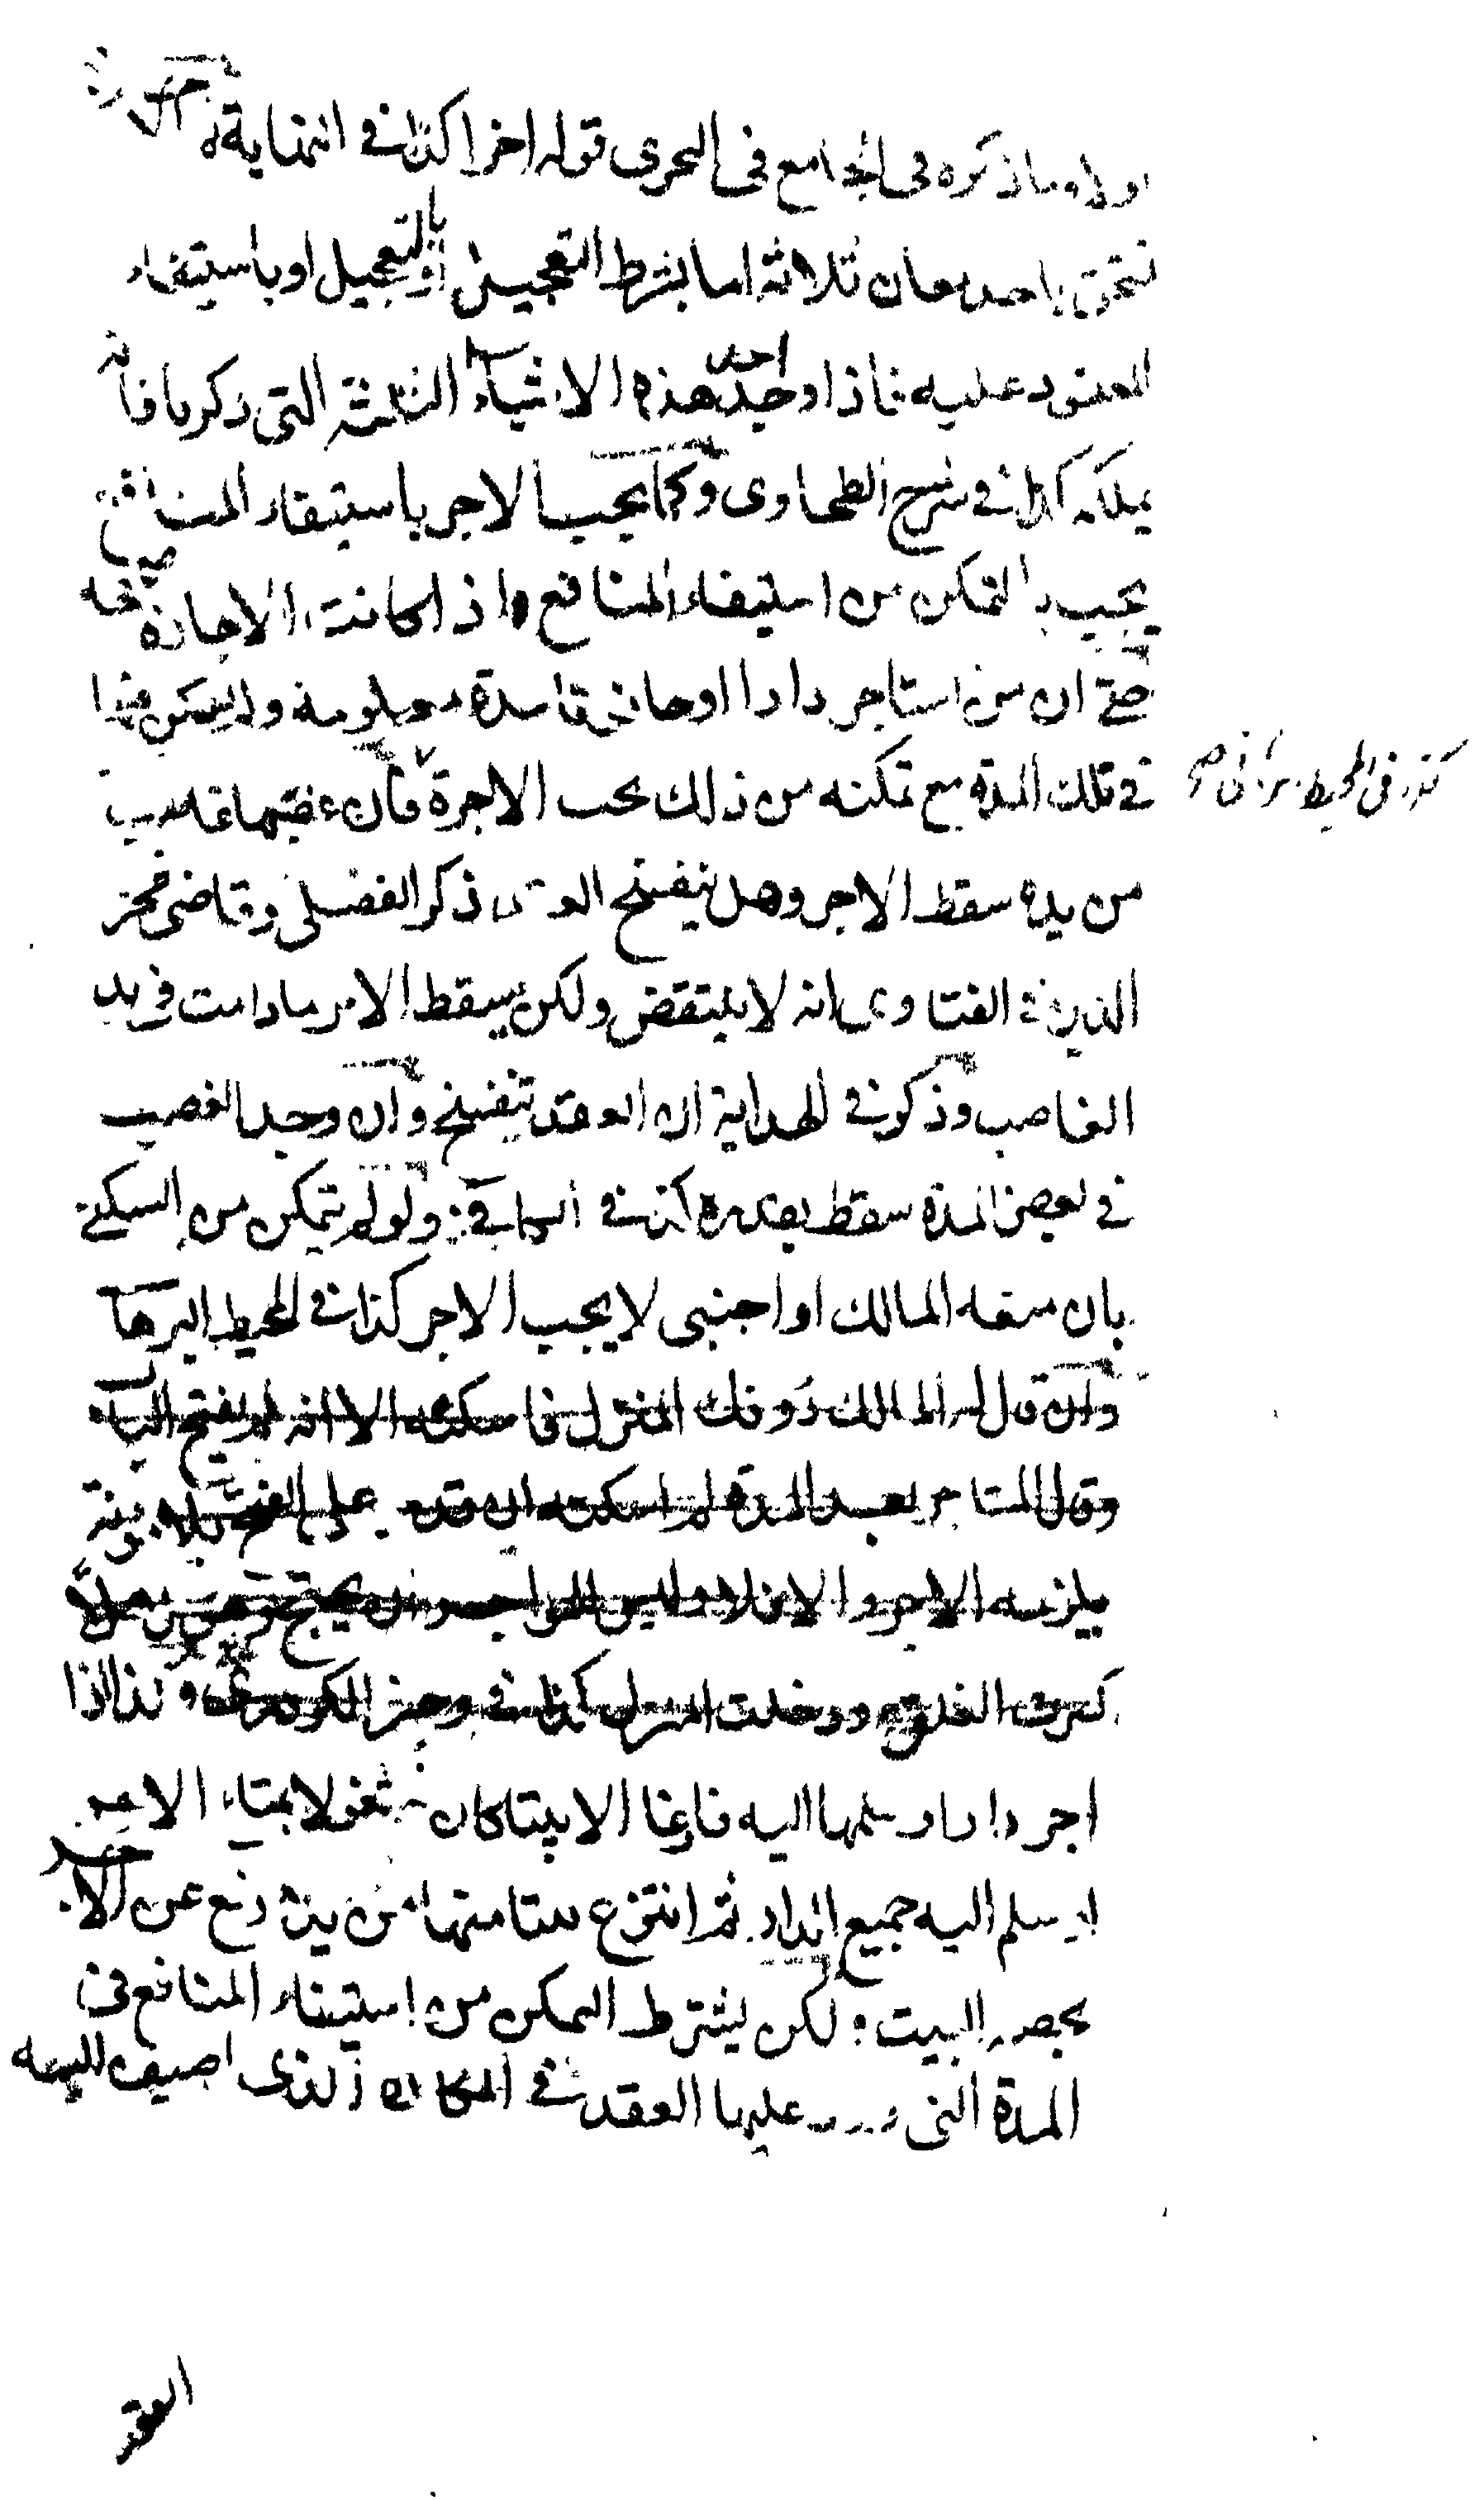 اولا وما ذكره في الجامع في التحرى قوله اخرا كذا في النهاية
تستحق باحد معان ثلاثة اما بشرط التعجيل او بالتعجيل او باستيفاء
المعقود عليه فاذا وجد احد هذه الاشياء الثلثة التى ذكرنا فانه
يملكه كذا في شرح الطحاوى وكما يجب الاجر باستيفاء المنافع
يجب بالتمكن من استيفاء المنافع اذا كانت الاجارة صحيحة
حتى ان من استاجر دارا او حانوتا مدة معلومة ولم يسكن فيها
في تلك المدة مع تمكنه من ذلك تجب الاجرة فان غصبها غاصب
كذا في المحيط
من يده سقط الاجر وهل ينفسخ العقد ذكر الفضلى وقاضى فخر
الدين في الفتاوى انه لا ينتقض ولكن يسقط الاجر مادامت في يد
الغاصب وذكر في الهداية ان العقد تنفسخ وان وجد الغصب
في بعض المدة سقط بقدره كذا في الكافي ولو لم يتمكن من السكنى
بان منعه المالك او اجنبى لا يجب الاجر كذا في المحيط البرهانى
وان قال له المالك دونك المنزل فاسكنه الا انه لم يفتح الباب
وقال المستاجر بعد المدة لم اسكنه ان قدر على الفتح بلا مؤنة
يلزمه الاجر والا فلا وليس للمواجر ان يحتج ويقول هلا
كسرت الغلق ودخلت المنزل كذا في وجيز الكردرى وكذا اذا
اجر دارا وسلمها اليه فارغا الا بيتا كان مشغولا بمتاع الاجر
او سلم اليه جميع الدار ثم انتزع بيتا منها من يده رفع عن الاجر
بحصة البيت لكن يشترط التمكن من استيفاء المنافع في
المدة التى ورد عليها العقد في المكان الذى اضيف اليه
العقد